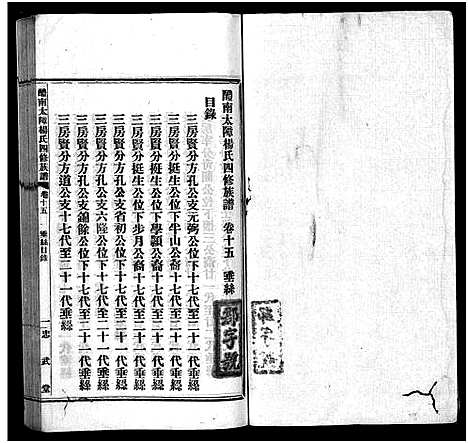 醴南太障楊氏四修族譜　卷十五　垂絲
目錄
三房賢分方孔公支元弼公位下十七代至二十一代垂絲
三房賢分挺生公位下半山公裔十七代至二十一代垂絲
三房賢分挺生公位下學顥公裔十七代至二十一代垂絲
三房賢分挺生公位下步月公裔十七代至二十一代垂絲
三房賢分方孔公支省初公位下十七代至二十一代垂絲
三房賢分方孔公支六隆公位下十七代至二十一代垂絲
三房賢分方孔公支錦餘公位下十七代至二十一代垂絲
三房賢分方道公支十七代至二十一代垂絲
醴南太障楊氏四修族譜　卷十五　垂絲目錄　一　忠武堂
鄒字號